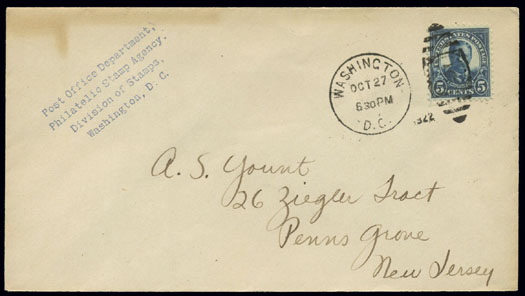 Post Office Department,
Philatelic Stamp Agency,
Division of Stamps,
Washington, D. C.
WASHINGTON
OCT 27
630PM
D.C.
1922
UNITED STATES POSTAGE
5 CENTS 5
A. S. Yount
26 Ziegler Tract
Penns Grove
New Jersey